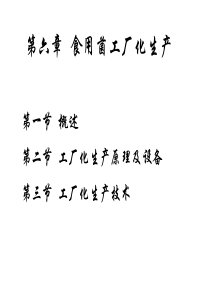 第六章 食用菌工厂化生产
第一节 概述
第二节 工厂化生产原理及设备
第三节 工厂化生产技术